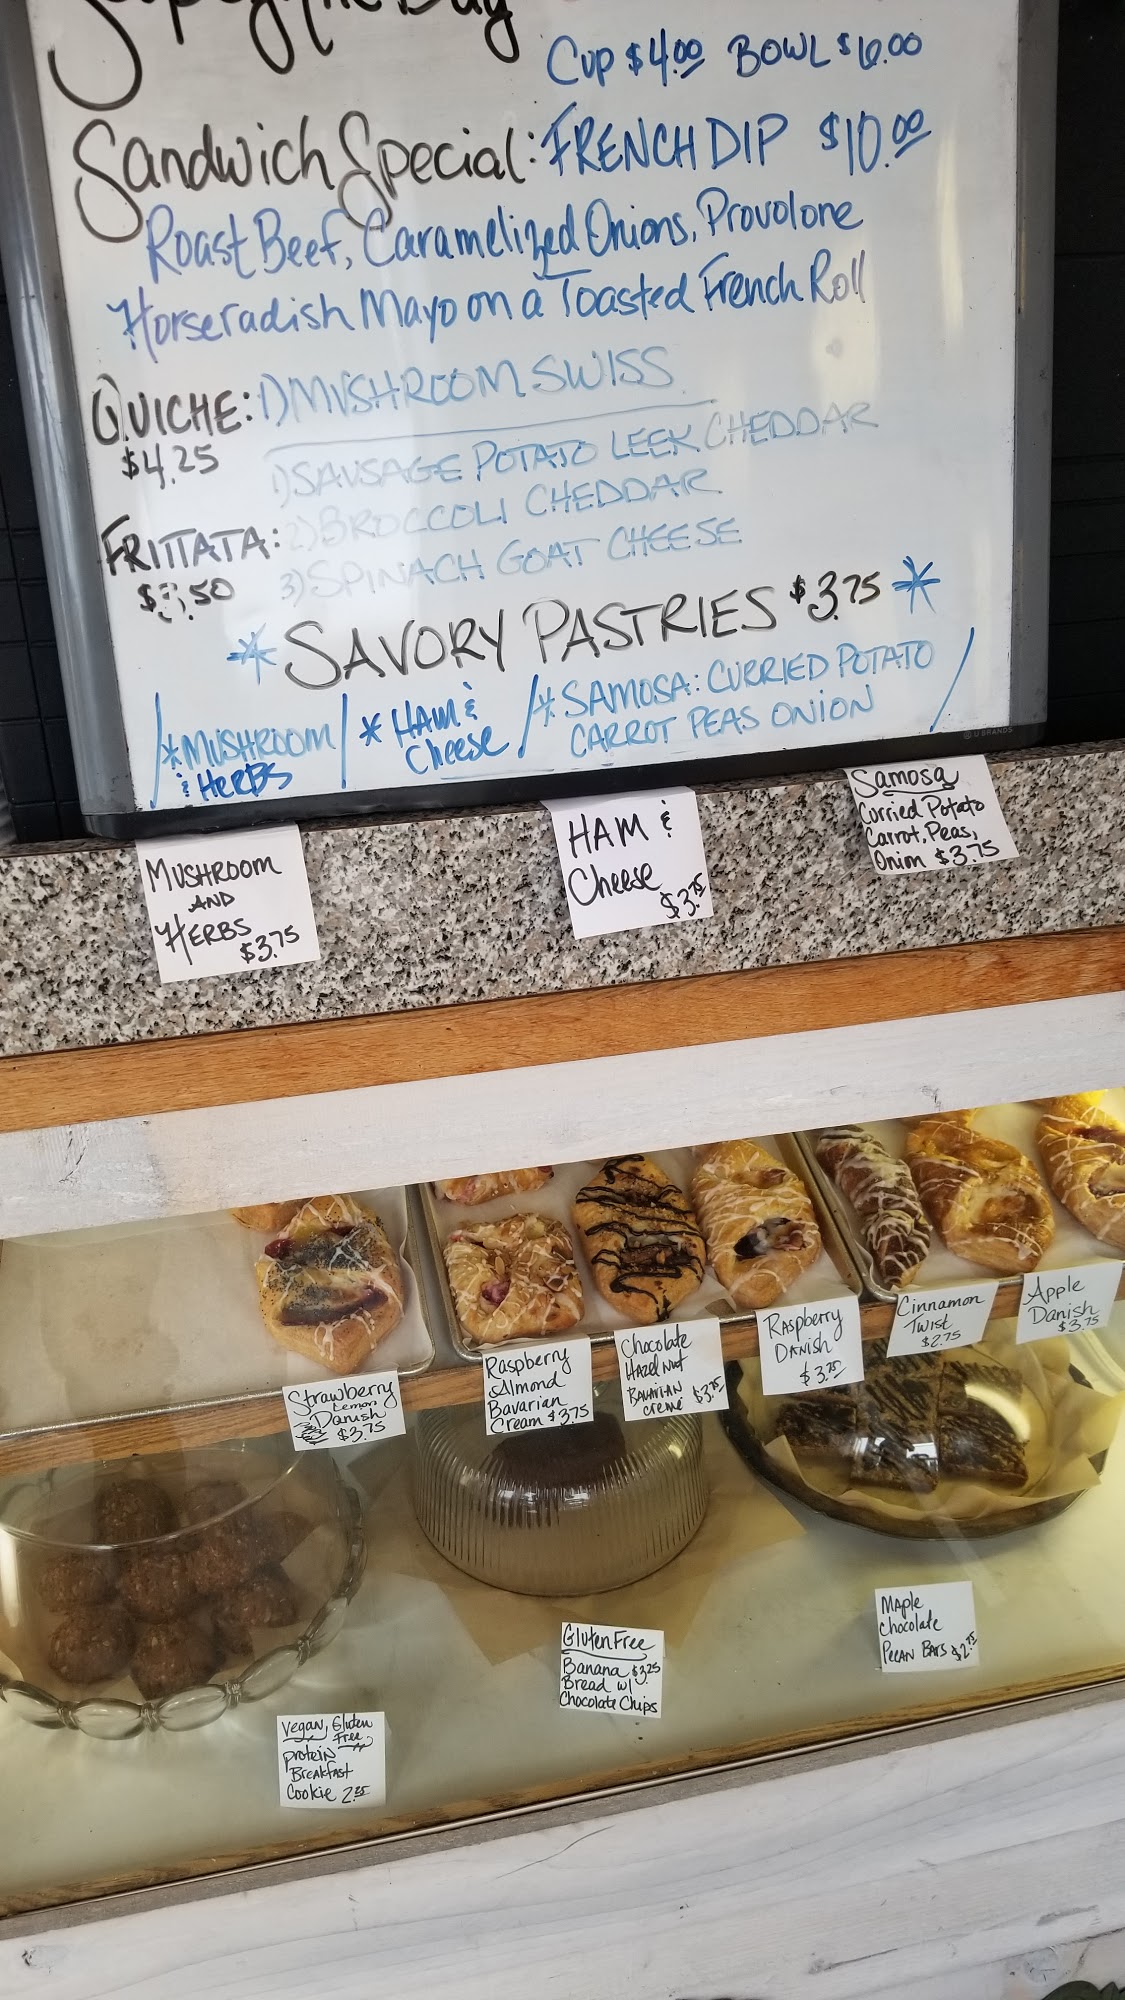 Soup of the Day
Cup $4.00 BOWL $6.00
Sandwich Special: FRENCH DIP $10.00
Roast Beef, Caramelized Onions, Provolone
Horseradish Mayo on a Toasted French Roll
QUICHE: 1) MUSHROOM SWISS
$4.25
1) SAUSAGE POTATO LEEK CHEDDAR
FRITTATA: 2) BROCCOLI CHEDDAR
3) SPINACH GOAT CHEESE
* SAVORY PASTRIES $3.75 *
/* MUSHROOM / * HAM & / * SAMOSA: CURRIED POTATO /
& HERBS Cheese CARROT PEAS ONION
U BRANDS
MUSHROOM
AND
HERBS
$3.75
HAM &
Cheese
$3.75
Samosa
Curried Potato
Carrot, Peas,
Onion $3.75
Strawberry
Lemon
Danish
$3.75
Raspberry
Almond
Bavarian
Cream $3.75
Chocolate
Hazelnut
Bavarian
creme $3.75
Raspberry
DANISH
$3.75
Cinnamon
Twist
$2.75
Apple
Danish
$3.75
Vegan, Gluten
Free
protein
Breakfast
Cookie 2.25
Gluten Free
Banana $3.25
Bread w/
Chocolate Chips
Maple
Chocolate
Pecan Bars $2.75